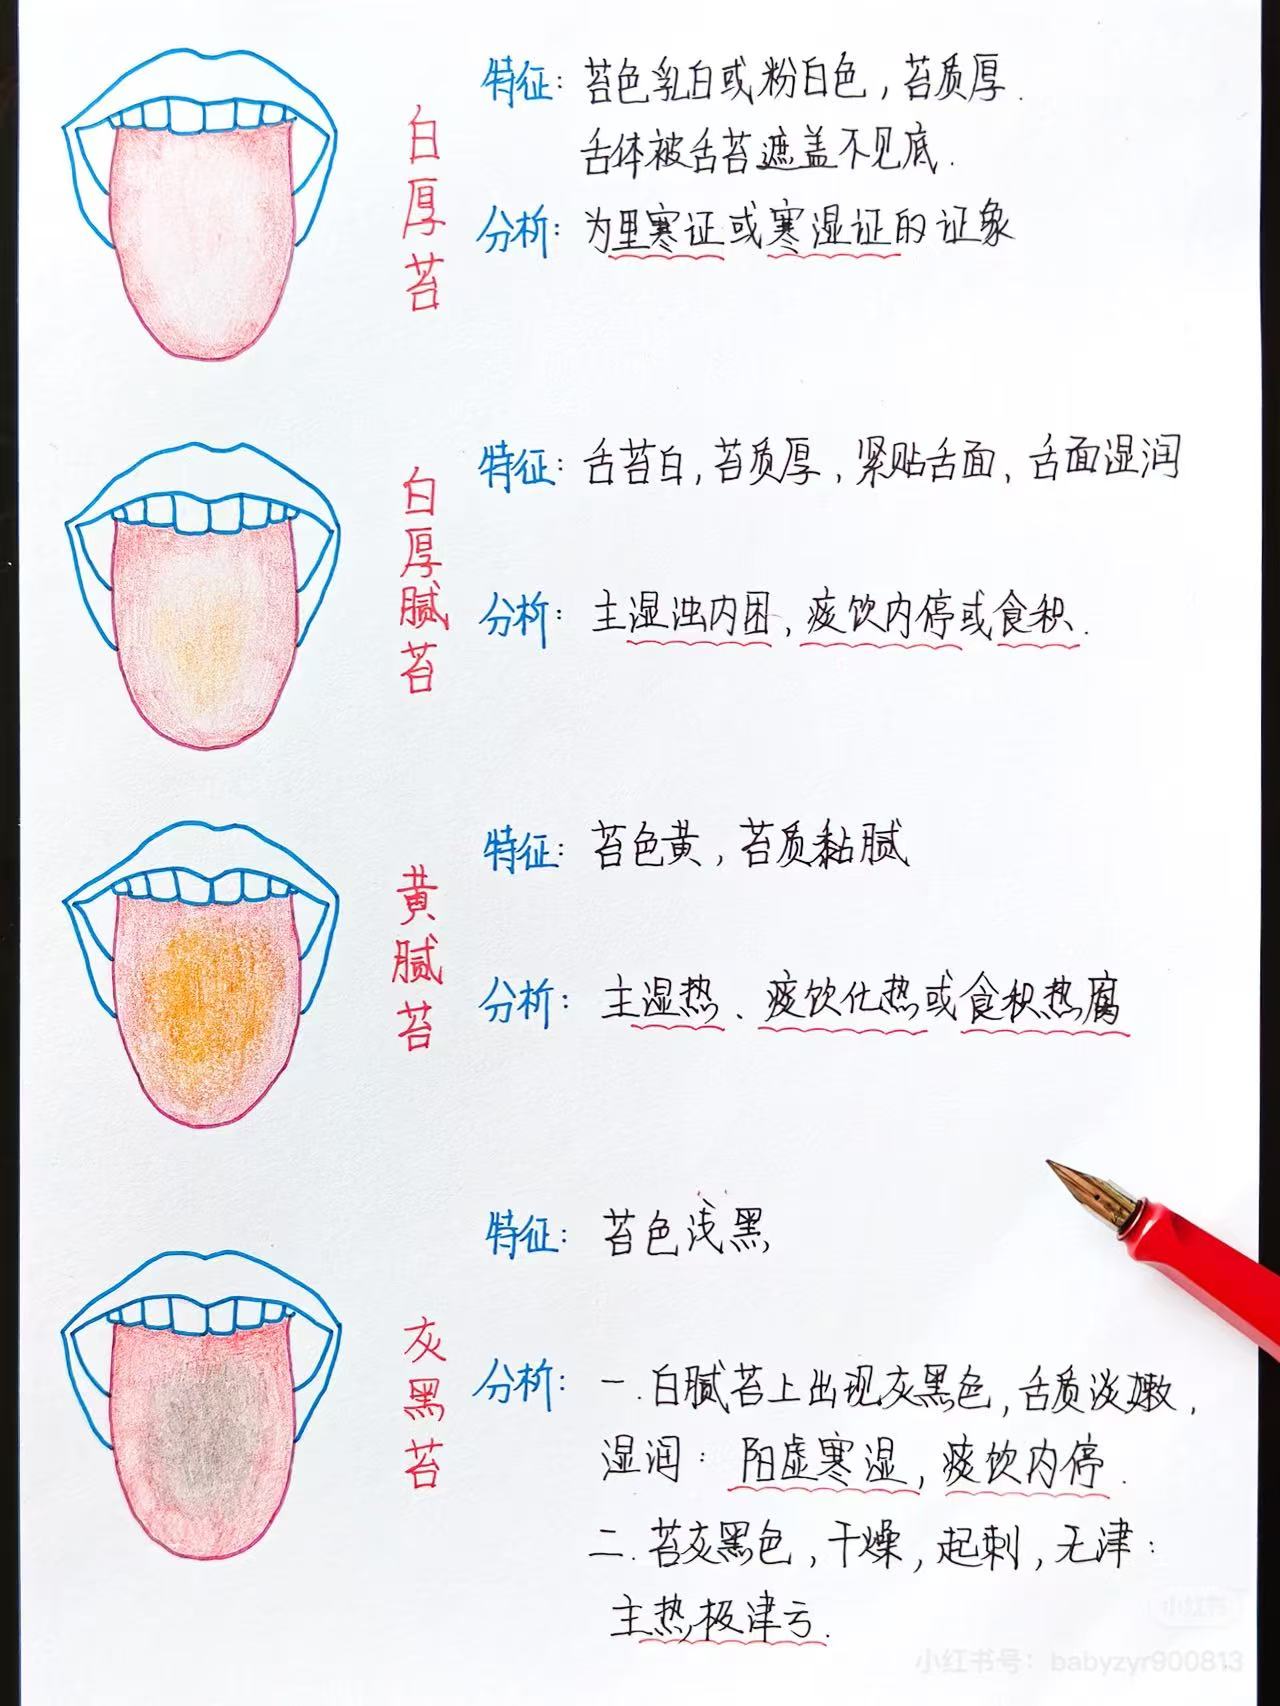 白厚苔
特征：苔色乳白或粉白色，苔质厚.
舌体被舌苔遮盖不见底.
分析：为里寒证或寒湿证的证象
白厚腻苔
特征：舌苔白，苔质厚，紧贴舌面、舌面湿润
分析：主湿浊内困、痰饮内停或食积.
黄腻苔
特征：苔色黄，苔质黏腻
分析：主湿热、痰饮化热或食积热腐
灰黑苔
特征：苔色浅黑
分析：一.白腻苔上出现灰黑色，舌质淡嫩，
湿润：阳虚寒湿，痰饮内停.
二.苔灰黑色，干燥，起刺，无津：
主热极津亏.
小红书
小红书号：babyzyr900813